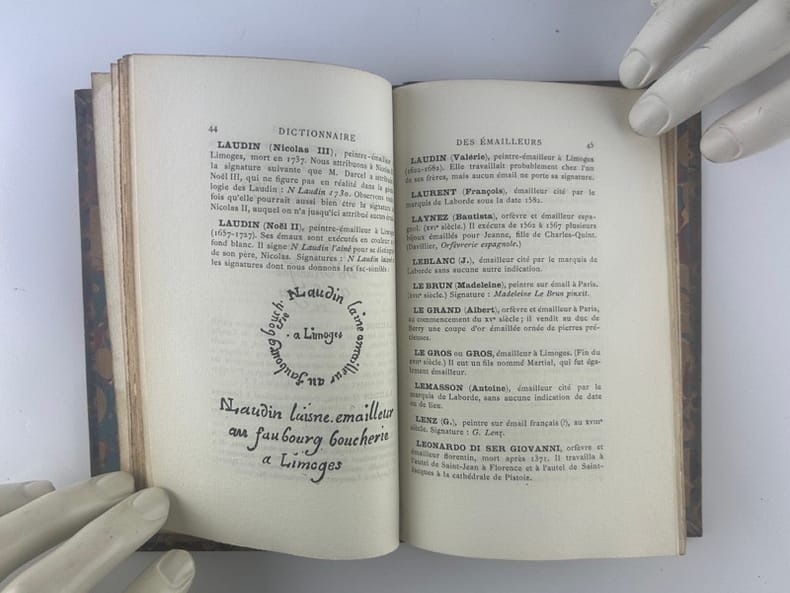 44
DICTIONNAIRE
LAUDIN (Nicolas III), peintre-émailleur
Limoges, mort en 1737. Nous attribuons à Nicolas
la signature suivante que M. Darcel a attribuée
Noël III, qui ne figure pas en réalité dans la
logie des Laudin : N Laudin 1730. Observons
fois qu'elle pourrait aussi bien être la signature
Nicolas II, auquel on n'a jusqu'ici attribué aucun
LAUDIN (Noël II), peintre-émailleur à Limoges
(1657-1727). Ses émaux sont exécutés en couleur
fond blanc. Il signe N Laudin l'aîné pour se distinguer
de son père, Nicolas. Signatures : N Laudin
les signatures dont nous donnons les fac-similé :
N Laudin laine amailleur au faubourg bouche rie
. a Limoges
N Laudin laisne. emailleur
au faubourg boucherie
a Limoges
DES ÉMAILLEURS
45
LAUDIN (Valérie), peintre-émailleur à Limoges
(1622-1682). Elle travaillait probablement chez l'un
de ses frères, mais aucun émail ne porte sa signature.
LAURENT (François), émailleur cité par le
marquis de Laborde sous la date 1582.
LAYNEZ (Bautista), orfèvre et émailleur espa-
gnol. (XVIe siècle.) Il exécuta de 1562 à 1567 plusieurs
bijoux émaillés pour Jeanne, fille de Charles-Quint.
(Davillier, Orfèvrerie espagnole.)
LEBLANC (J.), émailleur cité par le marquis de
Laborde sans aucune autre indication.
LE BRUN (Madeleine), peintre sur émail à Paris.
siècle.) Signature : Madeleine Le Brun pinxit.
LE GRAND (Albert), orfèvre et émailleur à Paris,
au commencement du XVe siècle ; il vendit au duc de
Berry une coupe d'or émaillée ornée de pierres pré-
cieuses.
LE GROS ou GROS, émailleur à Limoges. (Fin du
siècle.) Il eut un fils nommé Martial, qui fut éga-
lement émailleur.
LEMASSON (Antoine), émailleur cité par le
marquis de Laborde, sans aucune indication de date
ou de lieu.
LENZ (G.), peintre sur émail français (?), au XVIIIe
siècle. Signature : G. Lenz.
LEONARDO DI SER GIOVANNI, orfèvre et
émailleur florentin, mort après 1371. Il travailla à
l'autel de Saint-Jean à Florence et à l'autel de Saint-
Jacques à la cathédrale de Pistoie.